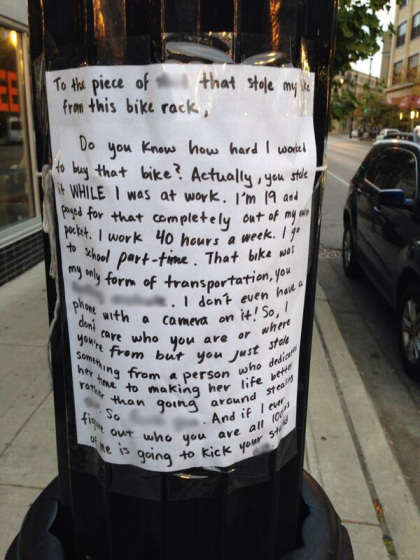 EE
To the piece of that stole my
from this bike rack,
Do you know how hard I worked
to buy that bike? Actually, you stole
it WHILE I was at work. I'm 19 and
payed for that completely out of my own
pocket. I work 40 hours a week. I go
to school part-time. That bike was
my only form of transportation, you
. I don't even have a
phone with a camera on it! So, I
don't care who you are or where
you're from but you just stole
something from a person who dedicates
her time to making her life better
rather than going around stealing
. So . And if I ever
figure out who you are all 100
of me is going to kick your